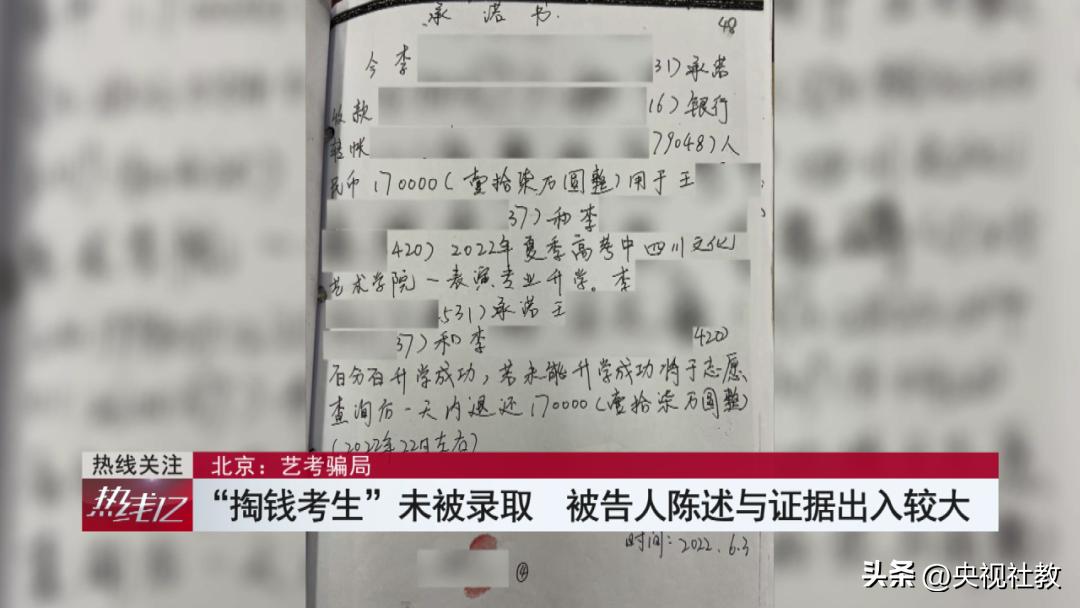 承诺书
48
今李 31)承诺
收款 16)银行
转帐 79048)人
民币170000(壹拾柒万圆整)用于王
37)和李
420)2022年夏季高考中四川文化
艺术学院一表演专业升学。李
531)承诺王
37)和李 420)
百分百升学成功,若未能升学成功将于志愿
查询后一天内退还170000(壹拾柒万圆整)
(2022年 22日左右)
热线关注
北京：艺考骗局
热线12
“掏钱考生”未被录取 被告人陈述与证据出入较大
时间：2022.6.3
④
头条 @央视社教